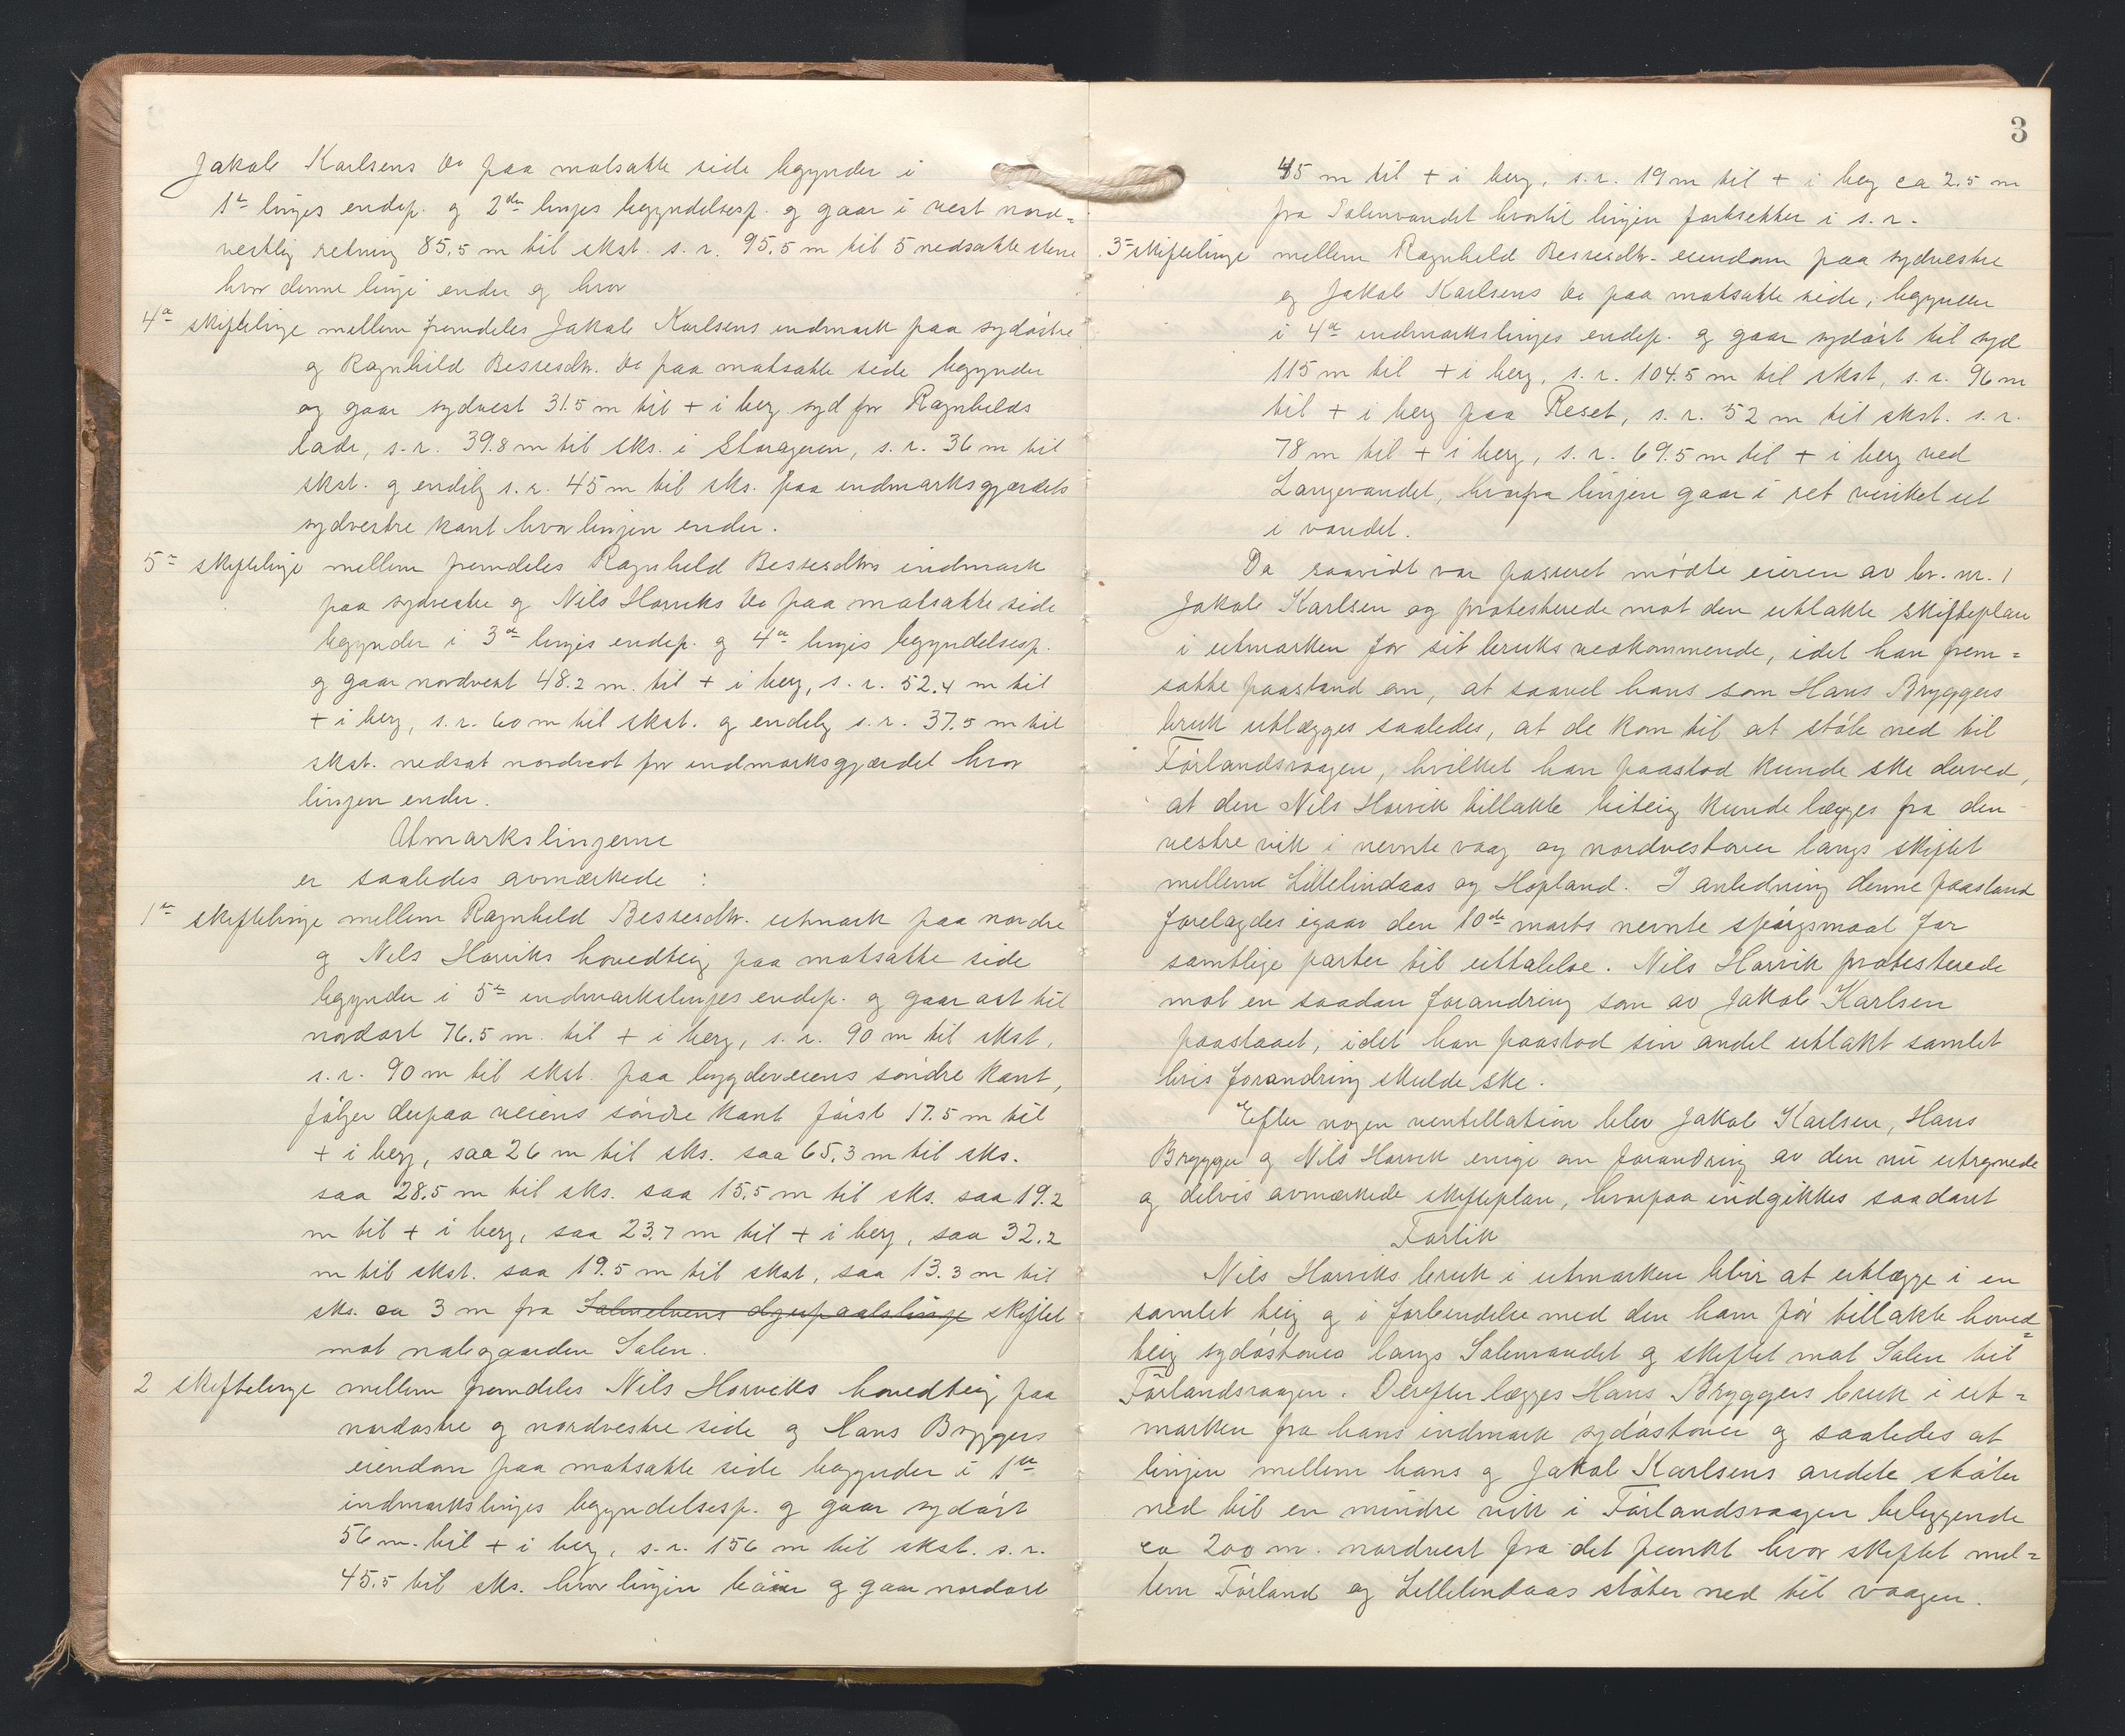 Jakob Karlsens do paa motsatte side begynder i
1ste linjes endep. og 2den linjes begyndelsesp. og gaar i vest nord=
vestlig retning 85,5 m til skst. s. r. 95,5 m til 5 nedsatte stene
hvor denne linje ender og hvor
4de skiftelinje mellem fremdeles Jakob Karlsens indmark paa sydøstre
og Ragnhild Bessesdtr. do paa motsatte side begynder
og gaar sydvest 31.5 m til + i berg syd for Ragnhilds
lade, s. r. 39.8 m til sks. i Storageren, s. r. 36 m til
skst. og endelig s. r. 45 m til sks. paa indmarksgjærdets
sydvestre kant hvor linjen ender.
5te skiftelinje mellem fremdeles Ragnhild Bessesdtrs indmark
paa sydvestre og Nils Horviks do paa motsatte side
begynder i 3die linjes endep. og 4de linjes begyndelsesp.
og gaar nordvest 48.2 m. til + i berg, s. r. 52.4 m til
+ i berg, s. r. 60 m til skst. og endelig s. r. 37.5 m til
skst. nedsat nordvest for indmarksgjærdet hvor
linjen ender.
Utmarkslinjerne
er saaledes avmærkede :
1ste skiftelinje mellem Ragnhild Bessesdtr. utmark paa nordre
og Nils Horviks hovedteig paa motsatte side
begynder i 5te indmarkslinjes endep. og gaar ost til
nordost 76.5 m. til + i berg, s. r. 90 m til skst.
s. r. 90 m til skst. paa bygdeveiens søndre kant,
følger derpaa veiens søndre kant først 17.5 m til
+ i berg, saa 26 m til sks. saa 65.3 m til sks.
saa 28.5 m til sks. saa 15.5 m til sks. saa 19.2
m til + i berg, saa 23.7 m til + i berg, saa 32.2
m til skst. saa 19.5 m til skst, saa 13.3 m til
sks. ca 3 m fra skiftet
mot nabogaarden Salen.
2 skiftelinje mellem fremdeles Nils Horviks hovedteig paa
nordostre og nordvestre side og Hans Bryggers
eiendom paa motsatte side begynder i 1ste
indmarkslinjes begyndelsesp. og gaar sydøst
56 m. til + i berg, s. r. 156 m til skst. s. r.
45.5 til sks. hvor linjen bøier og gaar nordost
3
45 m til + i berg, s. r. 19 m til + i berg ca 2.5 m
fra Salenvandet hvortil linjen fortsætter i s. r.
3die skiftelinje mellem Ragnhild Bessesdtr. eiendom paa sydvestre
og Jakob Karlsens do paa motsatte side, begynder
i 4de indmarkslinjes endep. og gaar sydøst til syd
115 m til + i berg, s. r. 104.5 m til skst, s. r. 96 m
til + i berg paa Reset, s. r. 52 m til skst. s. r.
78 m til + i berg, s. r. 69.5 m til + i berg ved
Langevandet, hvorfra linjen gaar i ret vinkel ut
i vandet.
Da saavidt var passeret mødte eieren av br. nr. 1
Jakob Karlsen og protesterede mot den utlakte skifteplan
i utmarken for sit bruks vedkommende, idet han frem=
satte paastand om, at saavel hans som Hans Bryggers
bruk utlægges saaledes, at de kom til at støte ned til
Førlandsvaagen, hvilket han paastod kunde ske derved,
at den Nils Horvik tillakte biteig kunde lægges fra den
vestre vik i nevnte vaag og nordvestover langs skiftet
mellem Lillelindaas og Hopland. I anledning denne paastand
forelagdes igaar den 10de marts nevnte spørgsmaal for
samtlige parter til uttalelse. Nils Horvik protesterede
mot en saadan forandring som av Jakob Karlsen
paastaaet, idet han paastod sin andel utlakt samlet
hvis forandring skulde ske.
Efter nogen ventillation blev Jakob Karlsen, Hans
Brygger og Nils Horvik enige om forandring av den nu utregnede
og delvis avmærkede skifteplan, hvorpaa indgikkes saadant
Forlik
Nils Horviks bruk i utmarken blir at utlægge i en
samlet teig og i forbindelse med den ham før tillakte hoved=
teig sydøstover langs Salenvandet og skiftet mot Salen til
Førlandsvaagen. Derefter lægges Hans Bryggers bruk i ut=
marken fra hans indmark sydøstover og saaledes at
linjen mellem hans og Jakob Karlsens andele støter
ned til en mindre vik i Førlandsvaagen beliggende
ca 200 m. nordvest fra det punkt hvor skiftet mel=
lem Førland og Lillelindaas støter ned til vaagen.